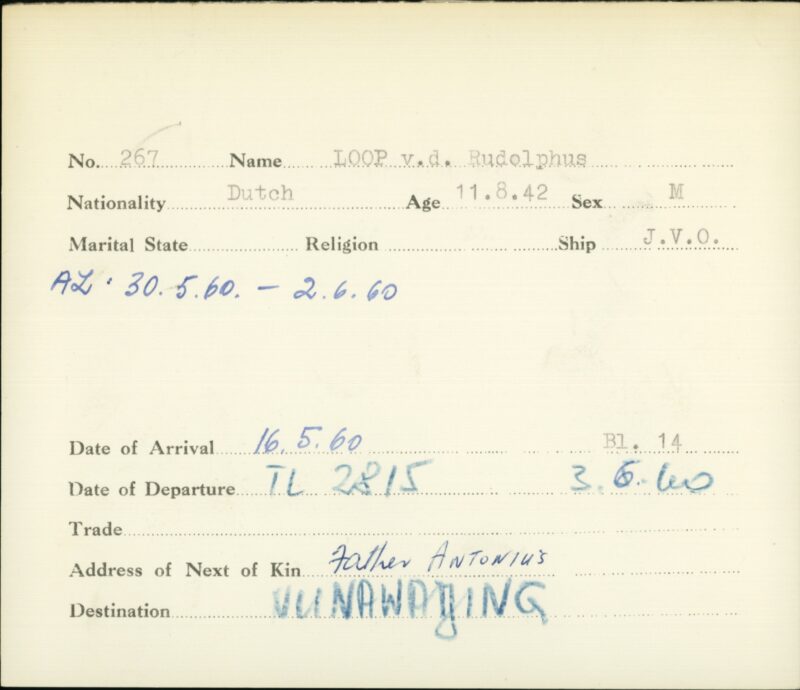 No. 267 Name LOOP v.d. Rudolphus
Nationality Dutch Age 11.8.42 Sex M
Marital State Religion Ship J.V.O.
AL. 30.5.60. - 2.6.60
Date of Arrival 16.5.60 Bl. 14
Date of Departure TL 2815 3.6.60
Trade
Address of Next of Kin Father ANTONIUS
Destination